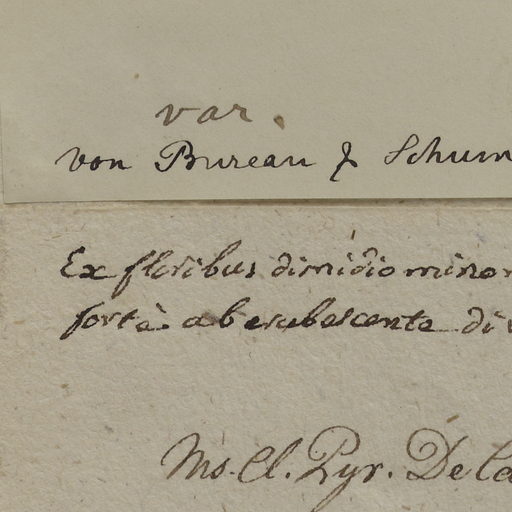 var.
von Bureau & Schum
Ex floribus dimidio minor
fortè ab erubescente di
Ms. Cl. Pyr. De Ca